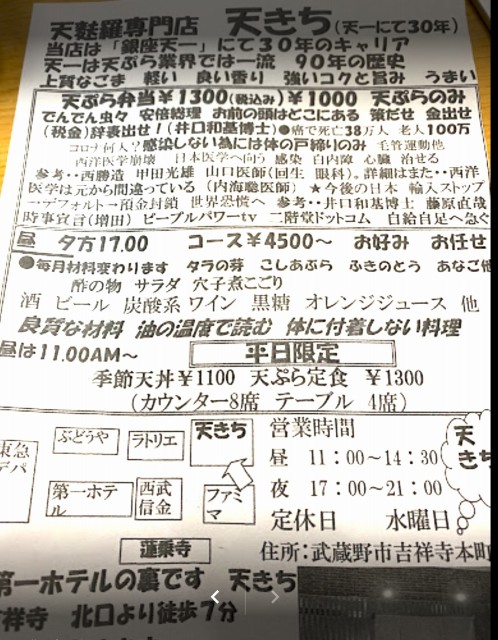 天麩羅専門店 天きち(天一にて30年)
当店は「銀座天一」にて30年のキャリア
天一は天ぷら業界では一流 90年の歴史
上質なごま 軽い 良い香り 強いコクと旨み うまい
天ぷら弁当¥1300(税込み)¥1000 天ぷらのみ
でんでん虫々 安倍総理 お前の頭はどこにある 策だせ 金出せ
(税金)辞表出せ!(井口和基博士)●癌で死亡38万人 老人100万
コロナ何人?感染しない為には体の戸締りのみ 毛管運動他
西洋医学崩壊 日本医学へ向う 感染 白内障 心臓 治せる
参考・・西勝造 甲田光雄 山口医師(回生 眼科)。詳細はまた・・西洋
医学は元から間違っている (内海聡医師) ★今後の日本 輸入ストップ
→デフォルト→預金封鎖 世界恐慌へ 参考・・井口和基博士 藤原直哉
時事宣言(増田) ピープルパワーtv 二階堂ドットコム 自給自足へ急ぐ
昼 夕方17.00 コース¥4500~ お好み お任せ
●毎月材料変わります タラの芽 こしあぶら ふきのとう あなご他
酢の物 サラダ 穴子煮こごり
酒 ビール 炭酸系 ワイン 黒糖 オレンジジュース 他
良質な材料 油の温度で読む 体に付着しない料理
昼は11.00AM~ 平日限定
季節天丼¥1100 天ぷら定食 ¥1300
(カウンター8席 テーブル 4席)
東急デパ
ぶどうや
ラトリエ
天きち
第一ホテル
西武信金
ファミマ
営業時間
昼 11:00~14:30
夜 17:00~21:00
定休日 水曜日
天きち
蓮乗寺
住所:武蔵野市吉祥寺本町
第一ホテルの裏です 天きち
祥寺 北口より徒歩7分